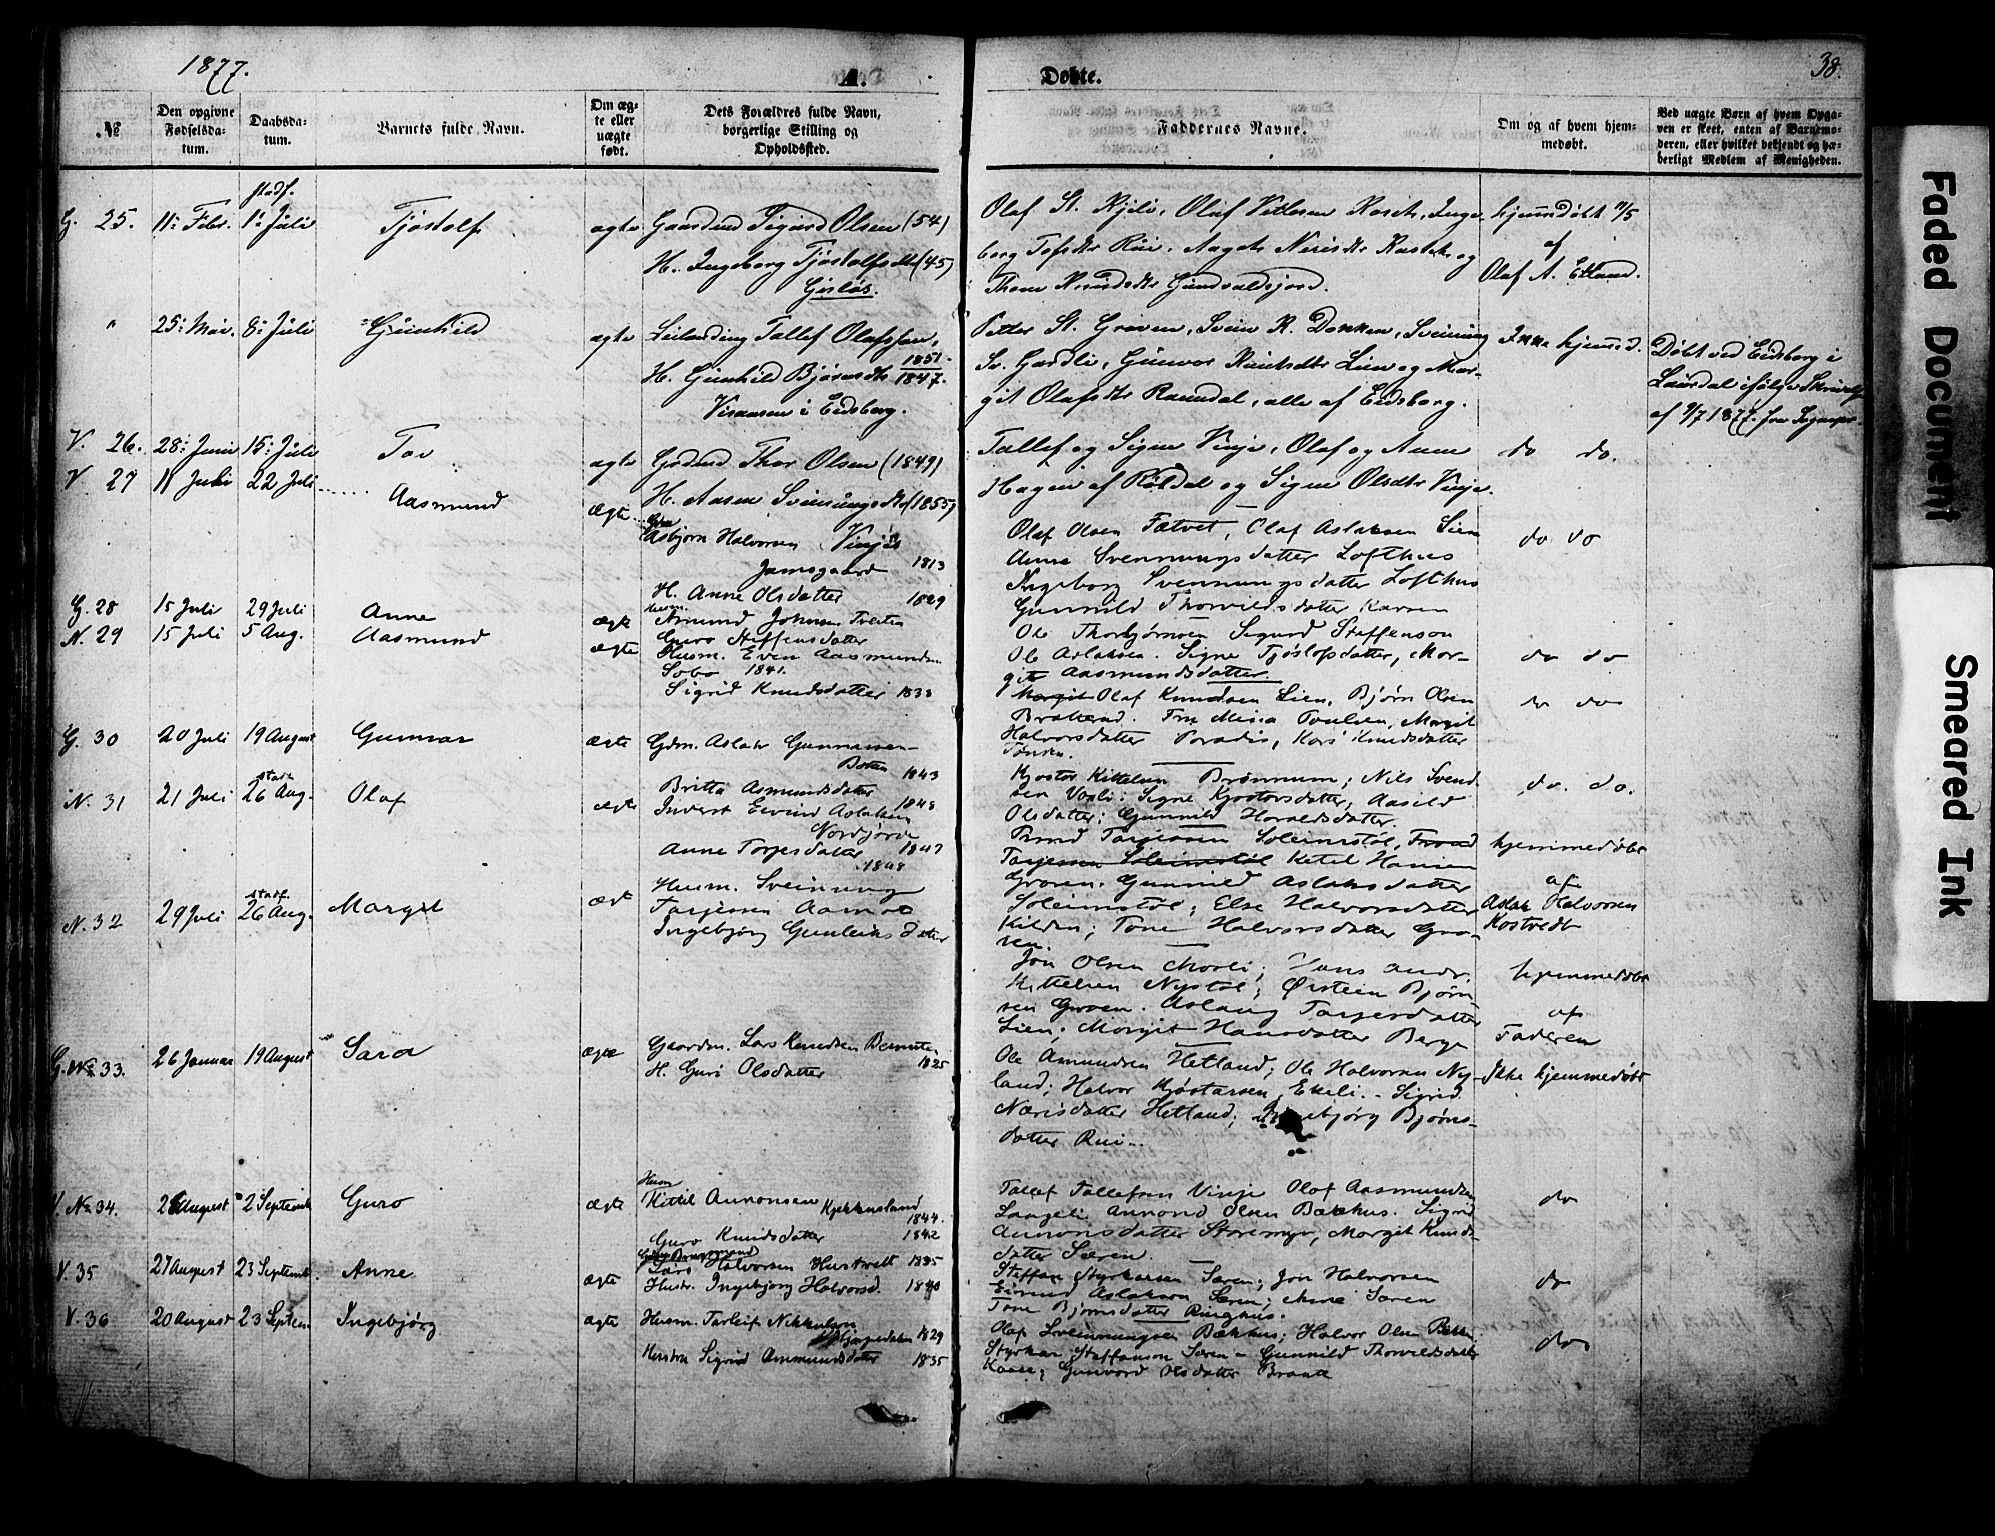 1877.
A.
Døbte.
38.
№
Den opgivne Fødselsda-tum.
Daabsda-tum.
Barnets fulde Navn.
Om æg-te eller uægte født.
Dets Forældres fulde Navn, borgerlige Stilling og Opholdssted.
Faddernes Navne.
Om og af hvem hjem-medøbt.
Ved uægte Børn af hvem Opga-ven er skeet, enten af Barnemo-deren, eller hvilket bekjendt og hæ-derligt Medlem af Menigheden.
stadf.
G. 25. 11: Febr. 1: Juli Tjøstolf ægte Gaardmd Sigurd Olsen (54)
H. Ingeborg Tjøstolfsdtr (45)
Olaf St. Kjeli, Olaf Vetlesen, Inge
borg Tofsdtr Rui, Aagot Nerisdtr og
Thone Nerisdtr Gundvaldsjord.
hjemdøbt 11/5
af
Olaf A. Etland.
" 25: Mai. 8: Juli Gunhild ægte Leilænding Tallef Olafssen,
1851.
H. Gunhild Bjørnsdtr 1847.
i Eidsborg.
Petter St. Groven, Svein K. Svenung
Sv. Gardli, Gunvor Lien og Mar-
git Olafsdtr Raundal, alle af Eidsborg.
Ikke hjemd.
Døbt ved Eidsborg i
Laurdal ifølge
af 9/7 1877 fra
V. 26. 28: Juni 15: Juli Tov ægte Grdmd Thor Olsen (1849)
H. Aasne Sveinungsdtr (1855)
Tallef og Signe Vinje, Olaf og Anne
Hagen af Røldal og Signe Olsdtr Vinje.
do do.
V 27 11 Juli 22 Juli Aasmund Ægte
Gdm
Asbjørn Halvorsen
Jamsgaard 1813
H. Anne Olsdatter 1829
Olaf Olsen Fætvet, Olaf Aslaksen Lien
Anne Svenningsdatter Lofthus
Ingeborg Svenningsdatter Lofthus
Gunnild Thorvildsdatter
do do
G. 28 15 Juli 29 Juli Anne Ægte
Husm.
Amund Johnsen Tveiten
Guro Steffensdatter
Ole Thorbjørnsen Sigurd Steffenson
Ole Aslaksen. Signe Tjøslofsdatter, Mar-
git Aasmundsdatter
do do
N. 29 15 Juli 5 Aug. Aasmund ægte Husm. Even Aasmundsen
1841.
Sigrid Knudsdatter 1838
Olaf Knudsen Lien, Bjørn Olsen
Fru Mina Poulsen, Margit
Halvorsdatter Paradis, Kari Knudsdatter
do do
G. 30 20 Juli 19 August Gunnar ægte Gdm. Aslak Gunnarsen
1843
Britta Asmundsdatter
1848
Kjøstov Kittelsen; Nils Svend
sen Vaali; Signe Kjøstovsdatter, Aasild
Olsdatter; Gunnild Haraldsdatter.
do. do.
stadf
N. 31 21 Juli 26 Aug. Olaf ægte Inderst Eivind Aslaksen
Nordjøre
1847
Anne Torjesdatter
1848
Trond Torjessen Soleimstøl, Trond
Torjessen Soleimstøl Ketil Hansen
Groven. Gunnild Aslaksdatter
Soleimstøl; Else Halvorsdatter
Kilden; Tone Halvorsdatter Gro-
ven.
hjemmedøbt
af
Aslak Halvorsen
Kostvedt
stadf.
N. 32 29 Juli 26 Aug. Margit ægt Husm. Sveinung
Tarjessen Aamot
Ingebjørg Gunleiksdatter
Jon Olsen; Hans Andr.
Kittelsen Nystøl; Øistein Bjørn
sen Groven. Aslaug Tarjesdatter
Lien; Margit Hansdatter Berge
hjemmedøbt
af
Faderen
G. № 33. 26 Januar 19 August Sara ægte Gaardm. Lars Knudsen
1825
H. Guri Olsdatter
Ole Amundsen Hetland; Ole Halvorsen Ny-
land; Halvor Kjøstarsen Ekeli. Sigrid
Nærisdatter Hetland; Ingebjørg Bjørns-
datter Rui.
Ikke hjemmedøbt
V. № 34. 28 August 2 Septemb Guro ægte
Husm
Kittil Annonsen
1844.
Guro Knudsdatter 1842
Tallef Tallefsen Vinje Olaf Aasmundsen
Laageli Annond Olsen Bækhus. Sigrid
Annonsdatter Storemyr, Margit Knuds-
datter Særen.
do
V. 35 27 August 23 Septemb. Anne ægte
Lars Halvorsen Hustveit 1835
Hustr. Ingebjørg Halvorsd. 1840
Steffan Styrkarsen Særen; Jon Halvorsen
Eivind Aslaksen Særen; Anne Særen
Tone Bjørnsdatter Ringhus.
do
V. 36 20 August 23 Septem. Ingebjørg ægte Husm. Tarleif Nikkulsen
1829
Hustru Sigrid Ammundsdatter 1835
Olaf Sveinungsen Bækhus; Halvor Olsen
Styrkar Staffanson Særen - Gunnild Thorvildsdatter
Kaase; Gunvord Olsdatter Braate
do
Faded Document
Smeared Ink